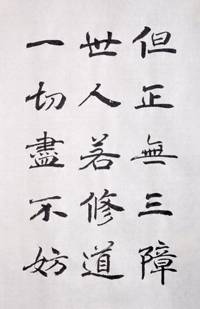 但正無三障
世人若修道
一切盡不妨